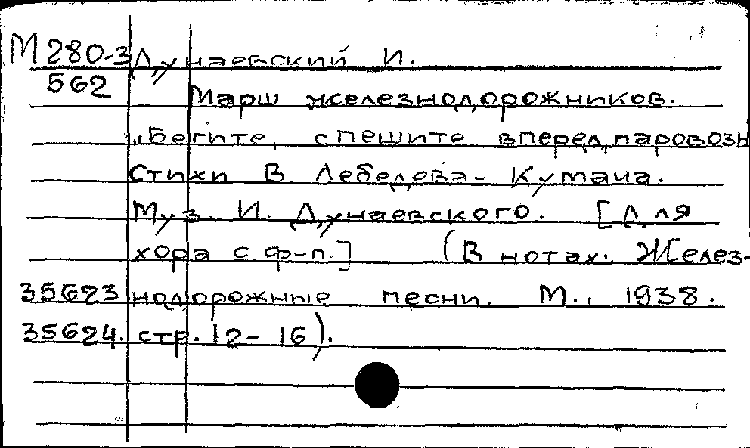 М280-3 Дунаевский И.
562 Марш железнодорожников.
"Бегите, спешите вперед, паровозы
Стихи В. Лебедева-Кумача.
Муз. И. Дунаевского. [Для
хора с ф-п.] (В нотах: Желез-
35623 нодорожные песни. М., 1938.
35624. стр. 12-16).